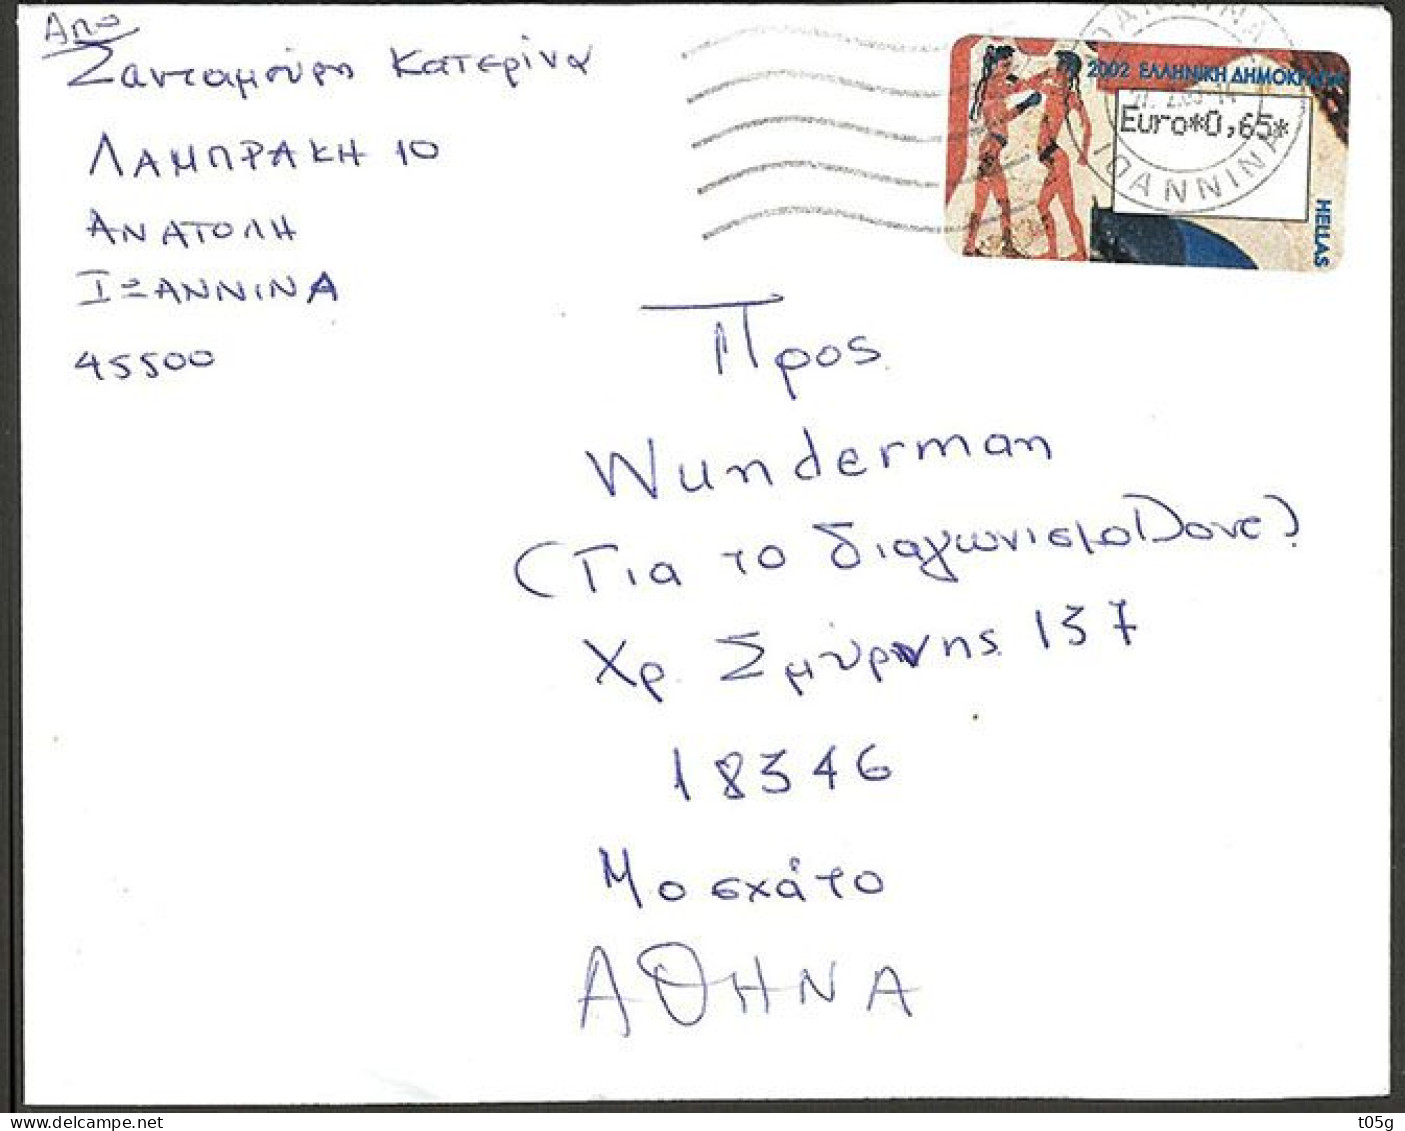 Απο
Σανταμούρη Κατερίνα
ΛΑΜΠΡΑΚΗ 10
ΑΝΑΤΟΛΗ
ΙΩΑΝΝΙΝΑ
45500
2002 ΕΛΛΗΝΙΚΗ ΔΗΜΟΚΡΑΤΙΑ
Euro*0,65*
HELLAS
ΙΩΑΝΝΙΝΑ
Προς
Wunderman
(Για το διαγωνισμο Dove)
Χρ. Σμύρνης 137
18346
Μοσχάτο
ΑΘΗΝΑ
t05g